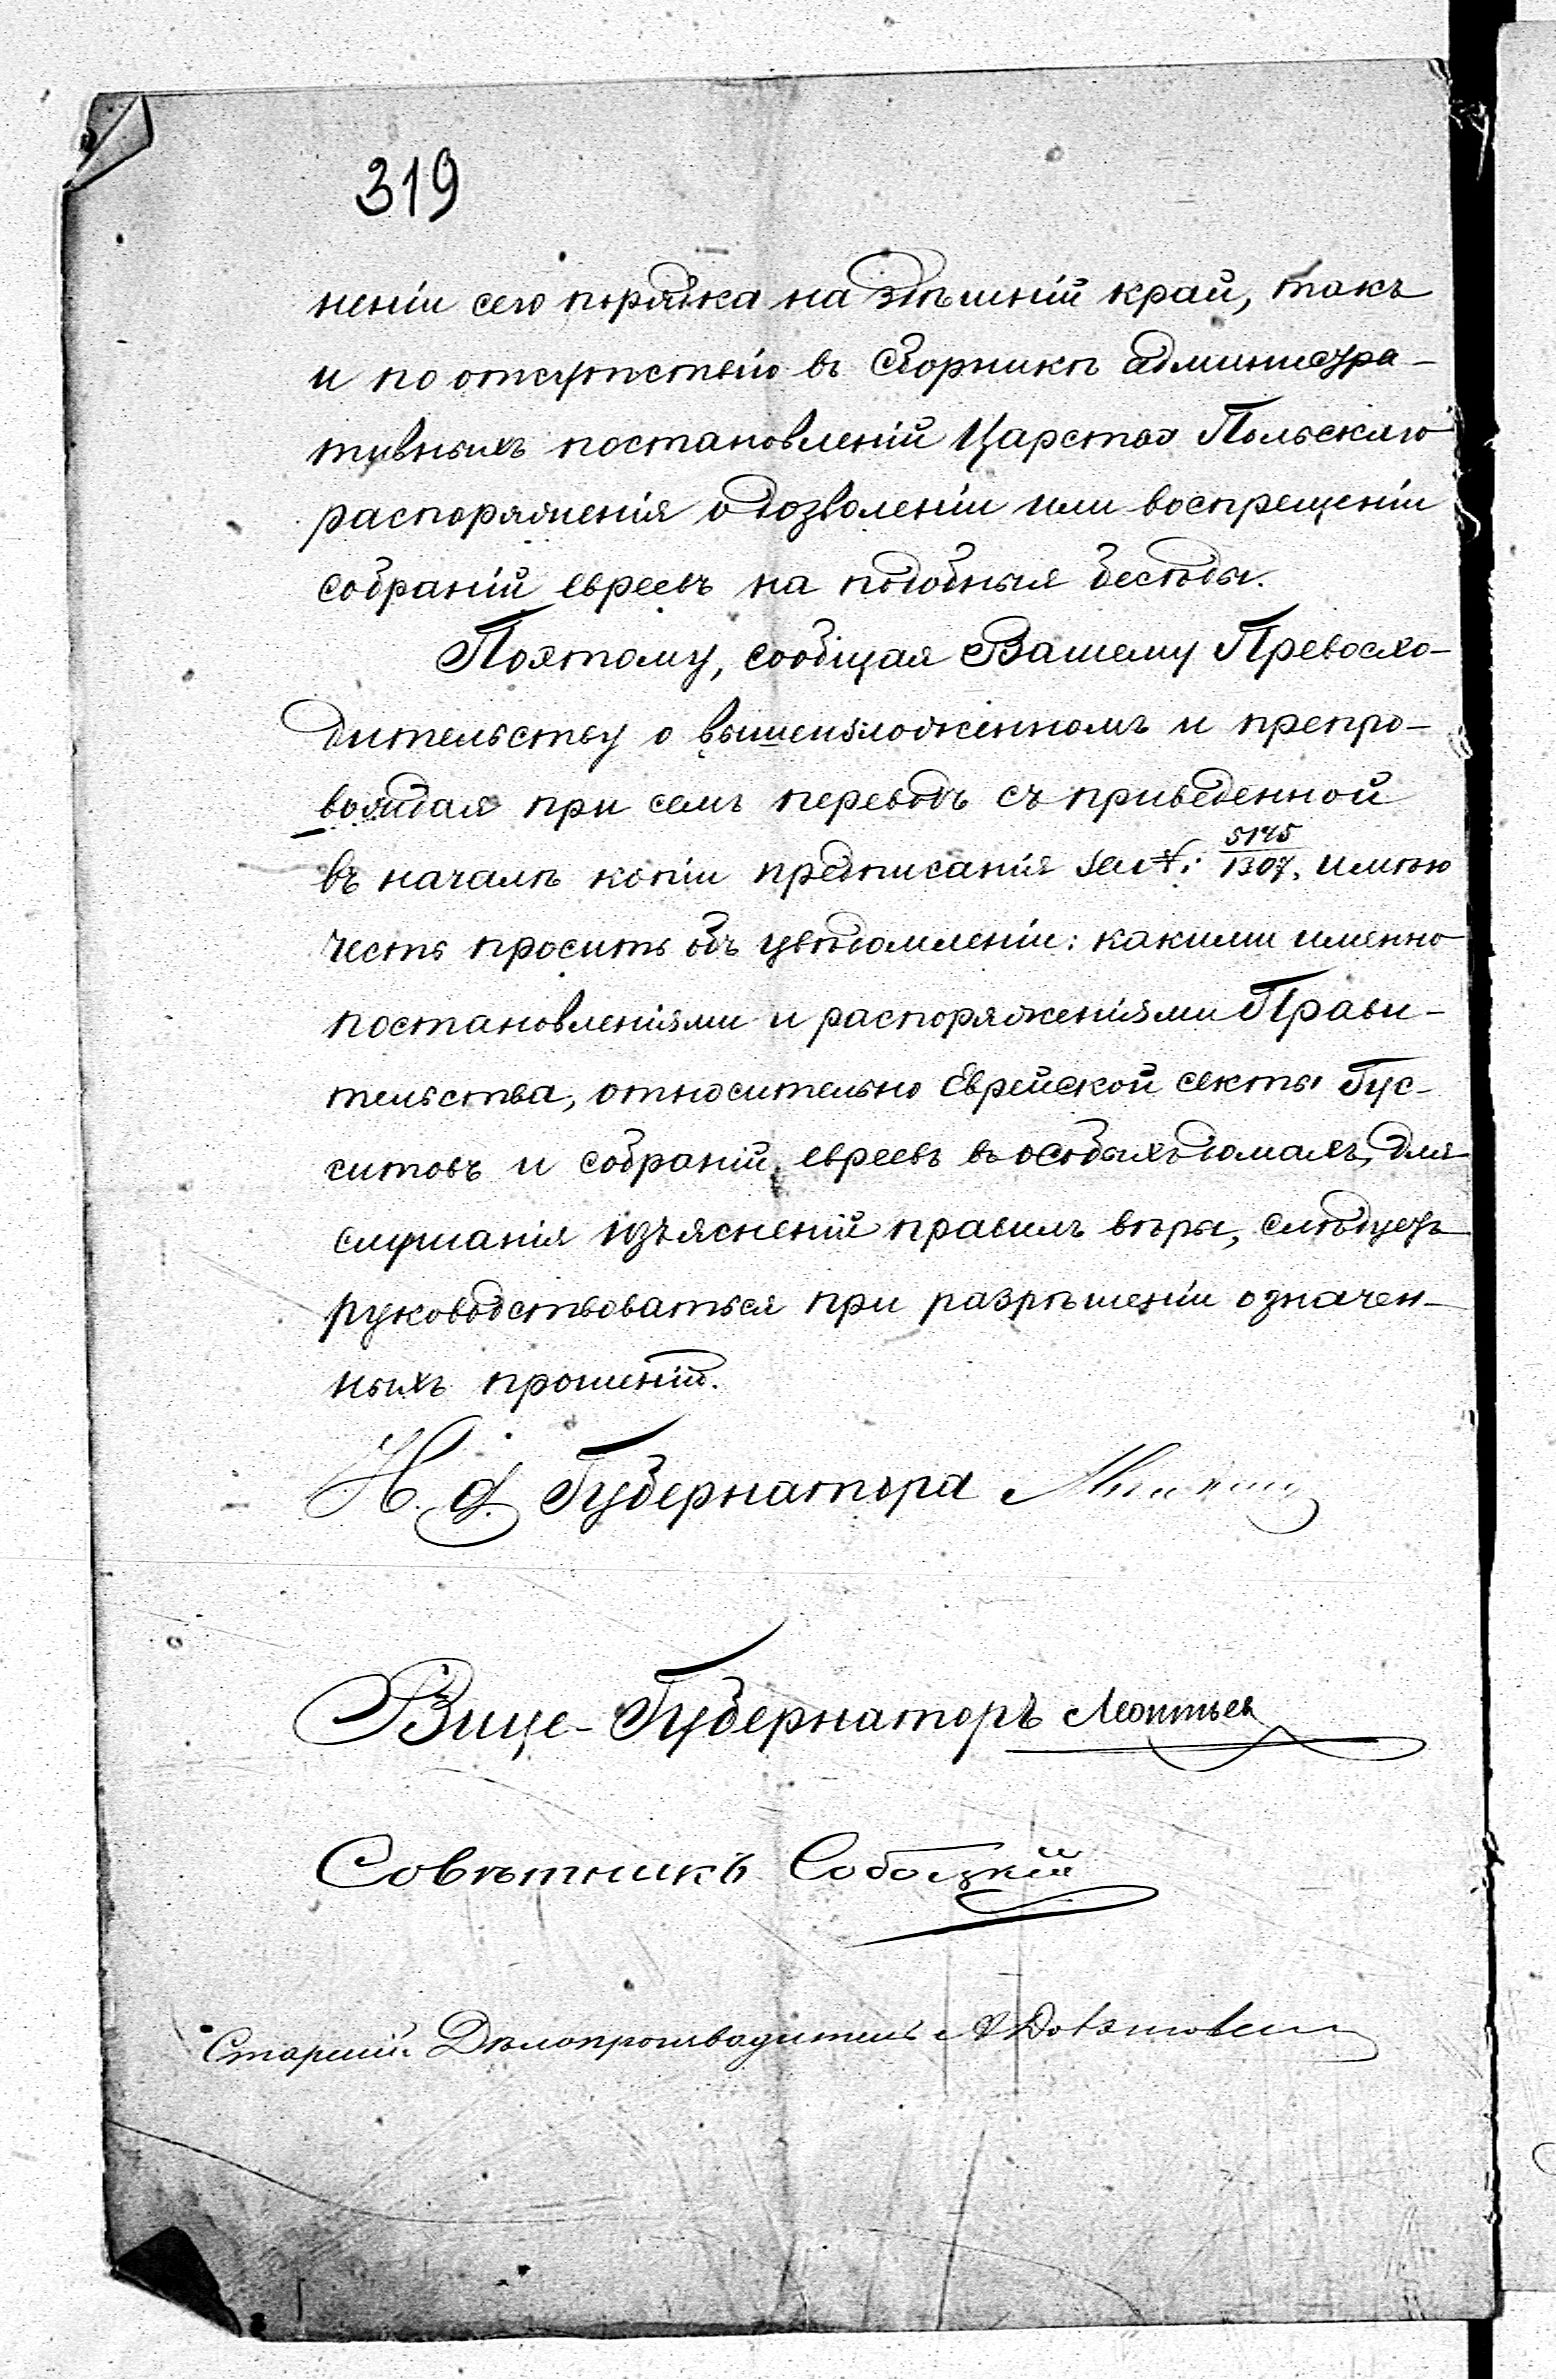 319
неніи сего порядка на здѣшній край, такъ
и по отсутствію въ Сборникѣ администра-
тивныхъ постановленій Царства Польскаго
распоряженія о дозволеніи или воспрещеніи
собраній евреевъ на подобныя бесѣды.
Поэтому, сообщая Вашему Превосхо-
дительству о вышеизложенномъ и препро-
вождая при семъ переводъ съ приведенной
въ началѣ копіи предписанія за №: 5175/1307, имѣю
честь просить объ увѣдомленіи: какими именно
постановленіями и распоряженіями Прави-
тельства, относительно Еврейской секты Гус-
ситовъ и собраній евреевъ въ особыхъ домахъ, для
слушанія изъясненій правилъ вѣры, слѣдуетъ
руководствоваться при разрѣшеніи означен-
ныхъ прошеній.
И. д. Губернатора
Вице-Губернаторъ Леонтьев
Совѣтникъ Собоцкій
Старшій Дѣлопроизводитель